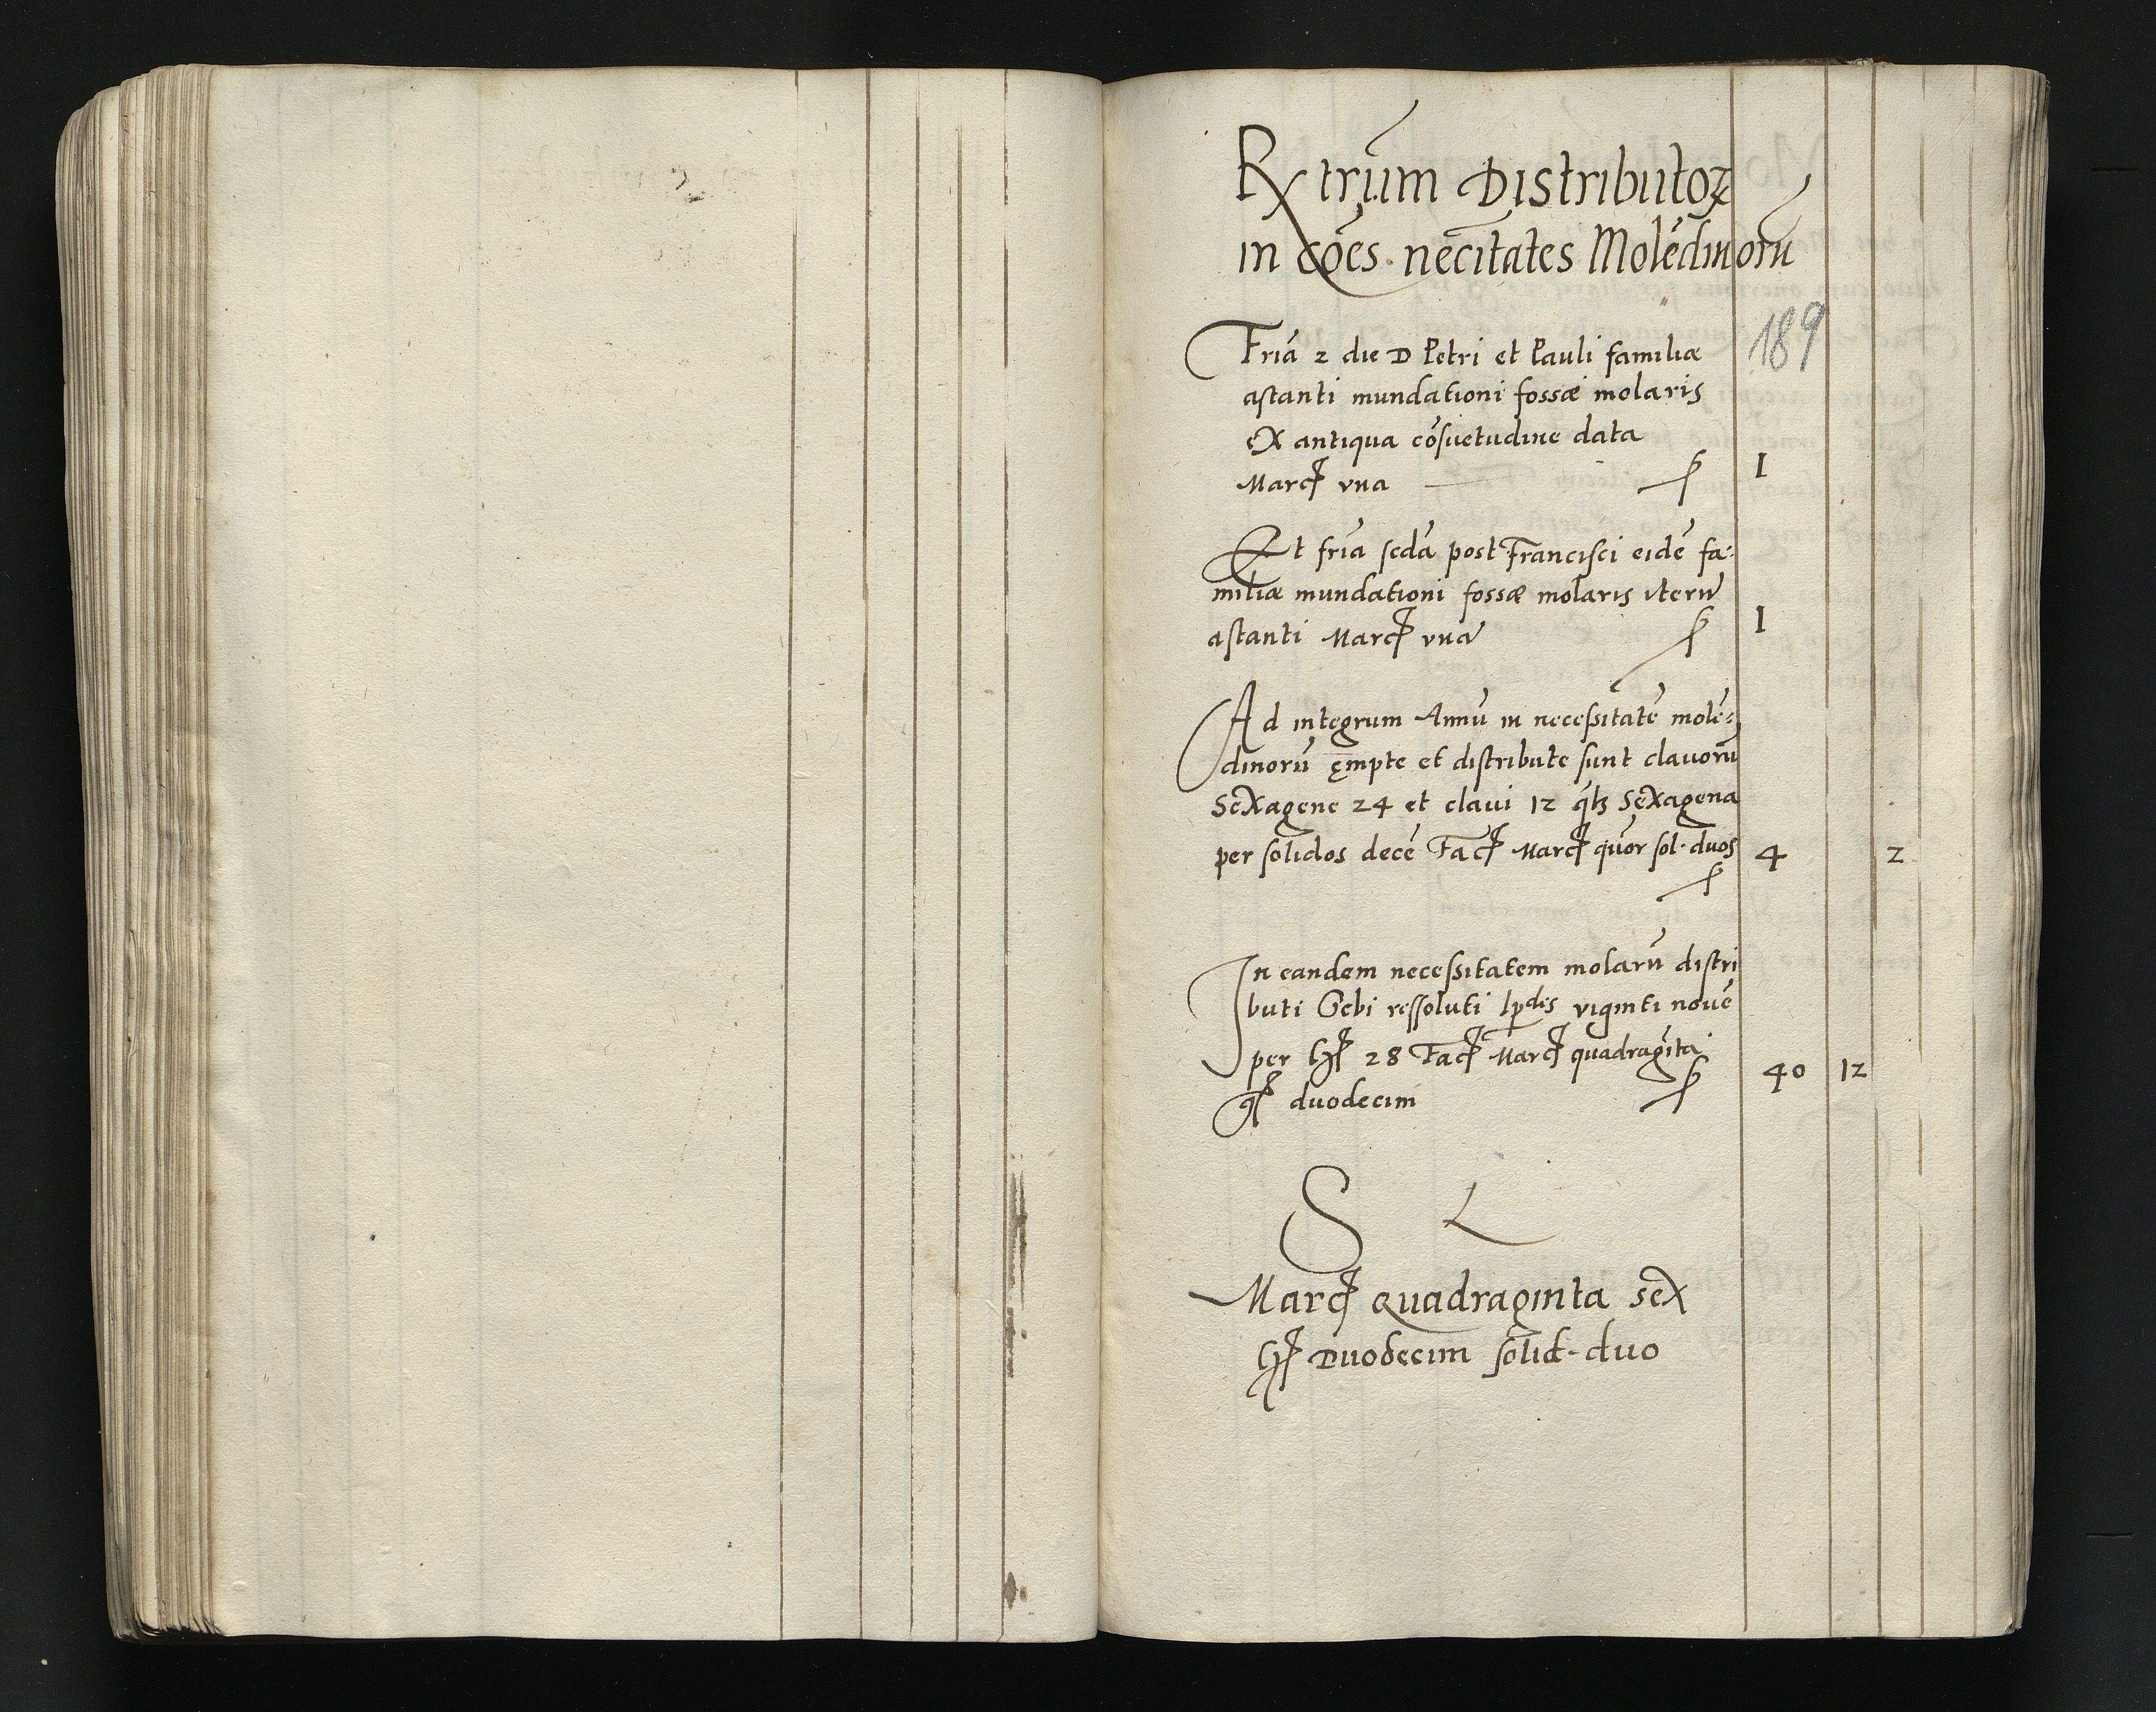 Rx trūm Distributoꝝ
in cōēs necītates Molēdinorū
189
Fria 2 die D Petri et Pauli familiæ
astanti mundationi fossæ molaris
ex antiqua cōsuetudine data
Marcꝭ vna 1
Et fria scda post Francisci eidē fa:
miliæ mundationi fossæ molaris iterū
astanti Marcꝭ vna 1
Ad integrum Annū in necessitatē molē:
dinorū ęmpte et distribute sunt clauorū
Sexagene 24 et claui 12 q̃lꝫ Sexagena
per solidos decē Facꝭ Marcꝭ quor sol. duos 4 2
In eandem necessitatem molarū distri
buti Sebi ressoluti lpdes viginti novē
per gꝭ 28 Facꝭ Marcꝭ quadragīta
gꝭ duodecim 40 12
S L
Marcꝭ quadraginta sex
gꝭ Duodecim solid. duo